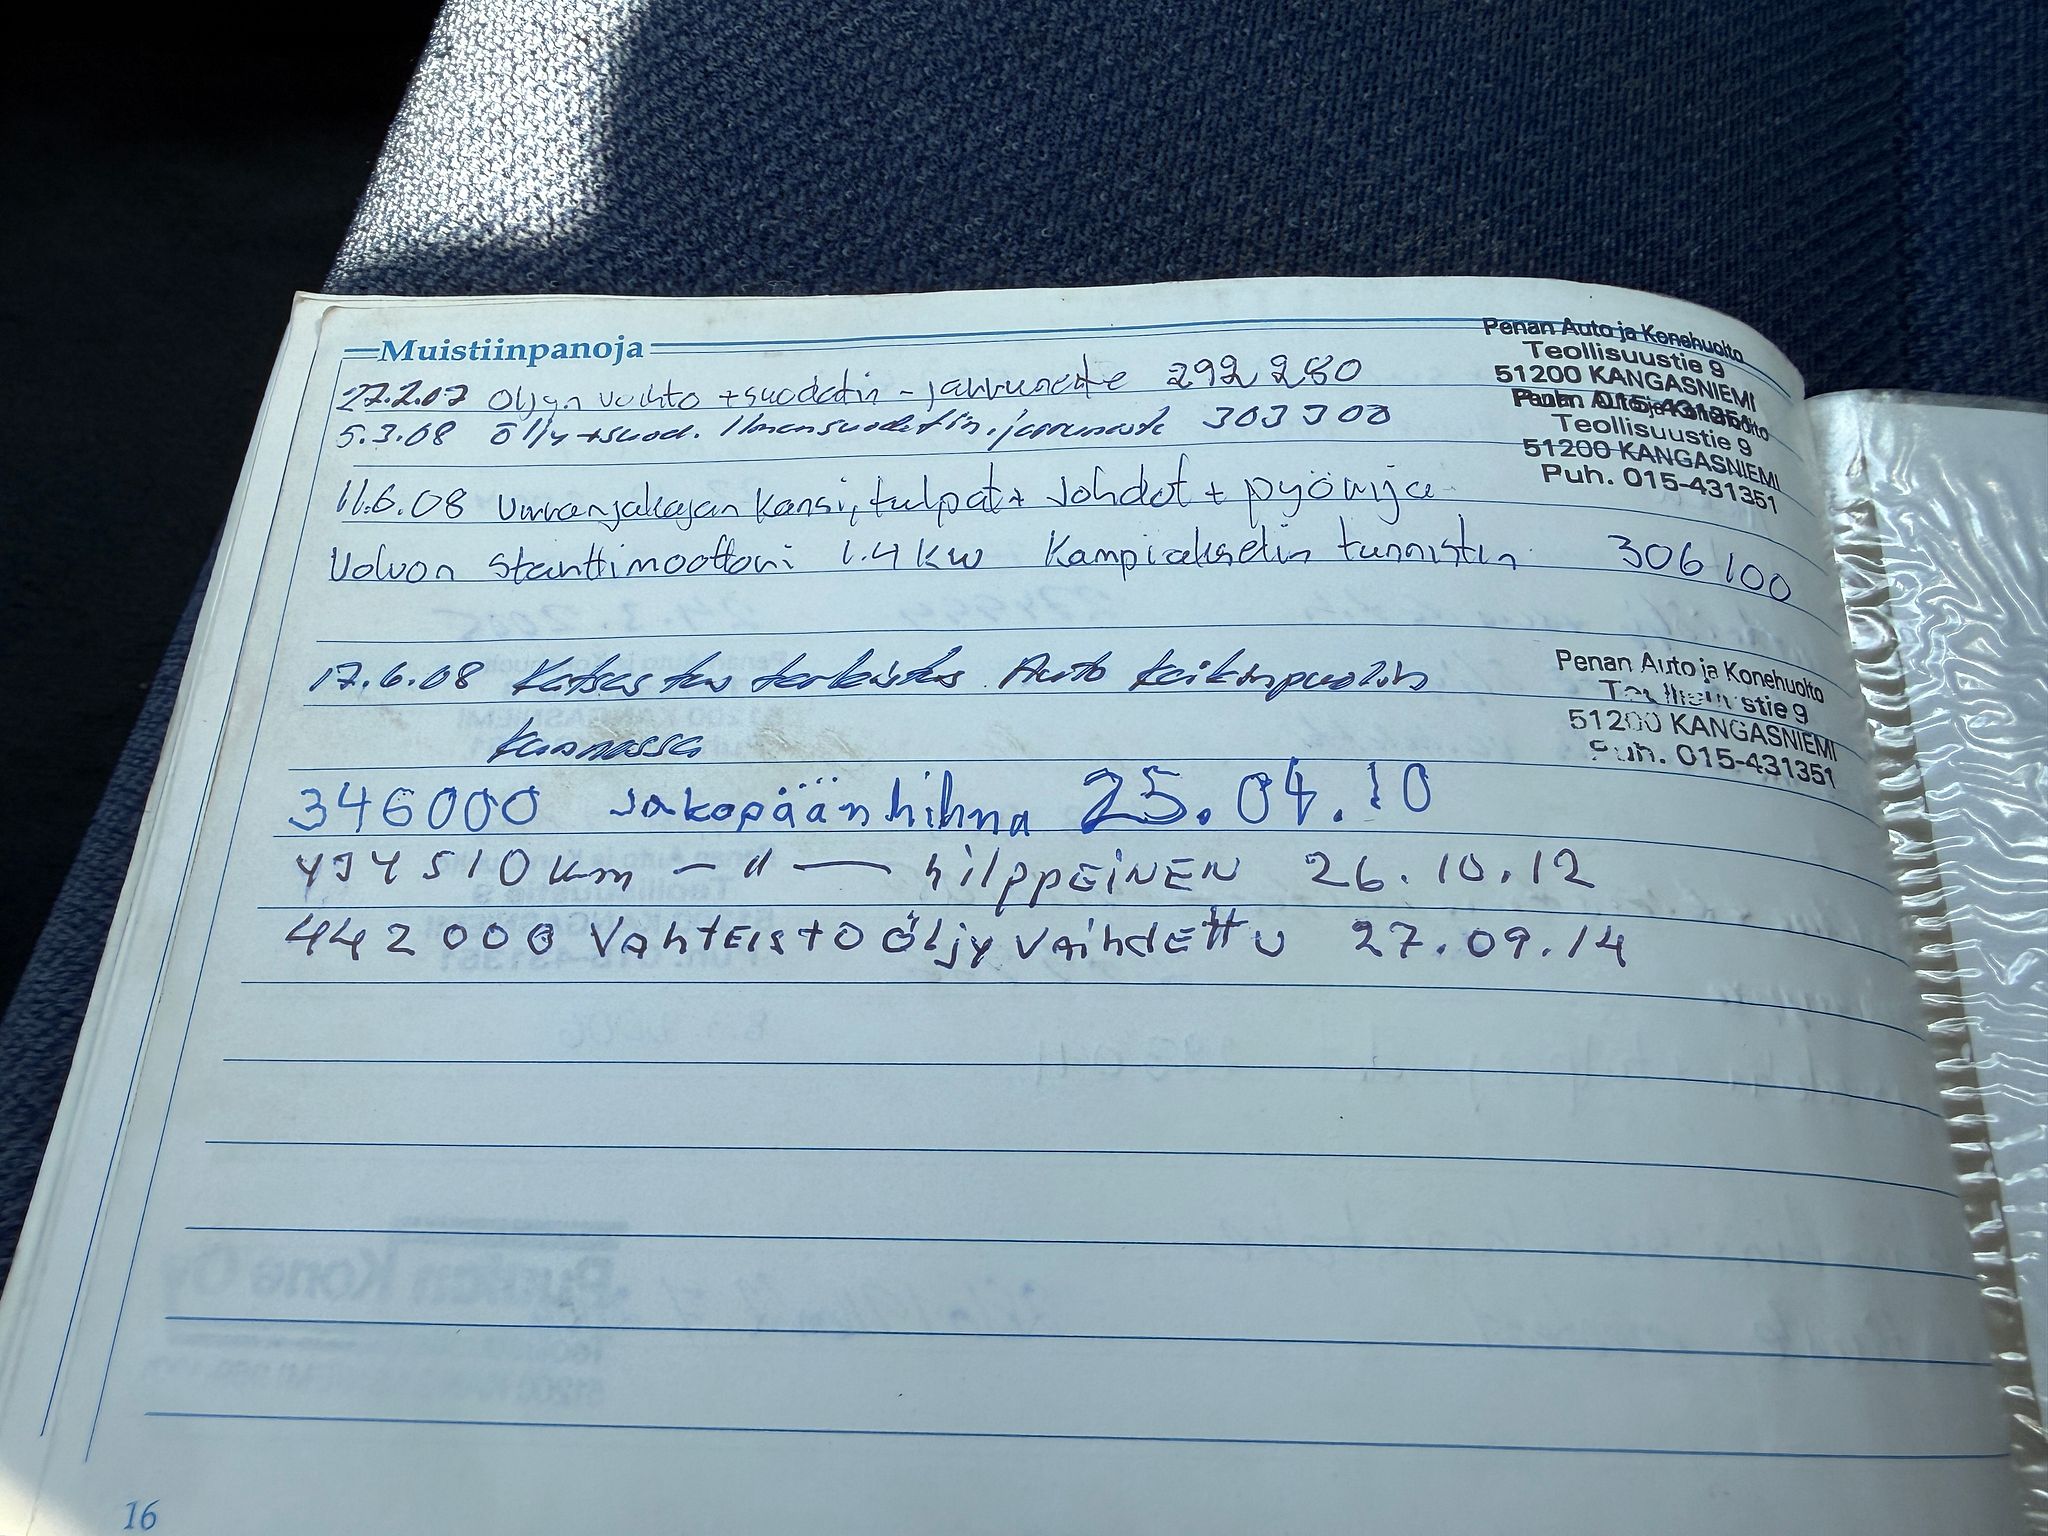 Muistiinpanoja
27.2.07 Öljyn vaihto + suodatin - jarruneste 292 280
5.3.08 öljy + suod. Ilmansuodatin, jarruneste 303 300
11.6.08 Virranjakajan kansi, tulpat + Johdot + pyörijä
Volvon starttimoottori 1.4 kw Kampiakselin tunnistin 306 100
17.6.08 Katsastus tarkastus Auto kaikinpuolin
kunnossa
346000 Jakopäänhihna 25.04.10
434510 km —〃— hilppEiNEN 26.10.12
442000 VahtEistO ÖLjy VaihdEttU 27.09.14
Penan Auto ja Konehuolto
Teollisuustie 9
51200 KANGASNIEMI
Teollisuustie 9
51200 KANGASNIEMI
Puh. 015-431351
Penan Auto ja Konehuolto
Teollisuustie 9
51200 KANGASNIEMI
Puh. 015-431351
16